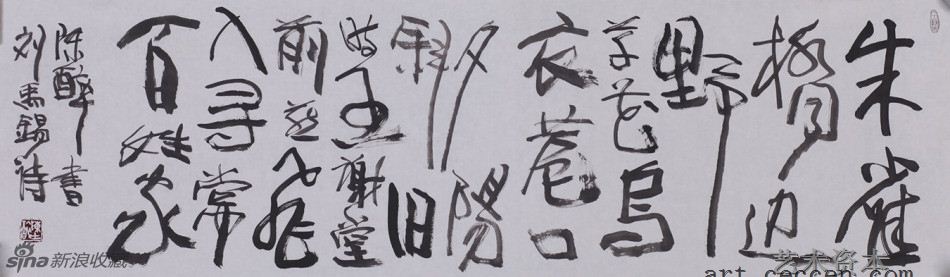 朱雀
橋边
野
草花乌
衣巷口
夕陽
斜旧
時王謝堂
前燕飞
入寻常
百姓家
陈醉書
刘禹錫诗
sina新浪收藏
艺术资本